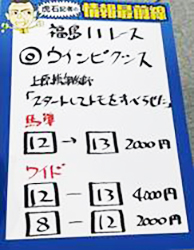 虎石記者の
情報最前線
福島11レース
◎ウインピクシス
「スタートしてトモをすべらせた」
馬単
12→13 2000円
ワイド
12－13 4000円
8－12 2000円